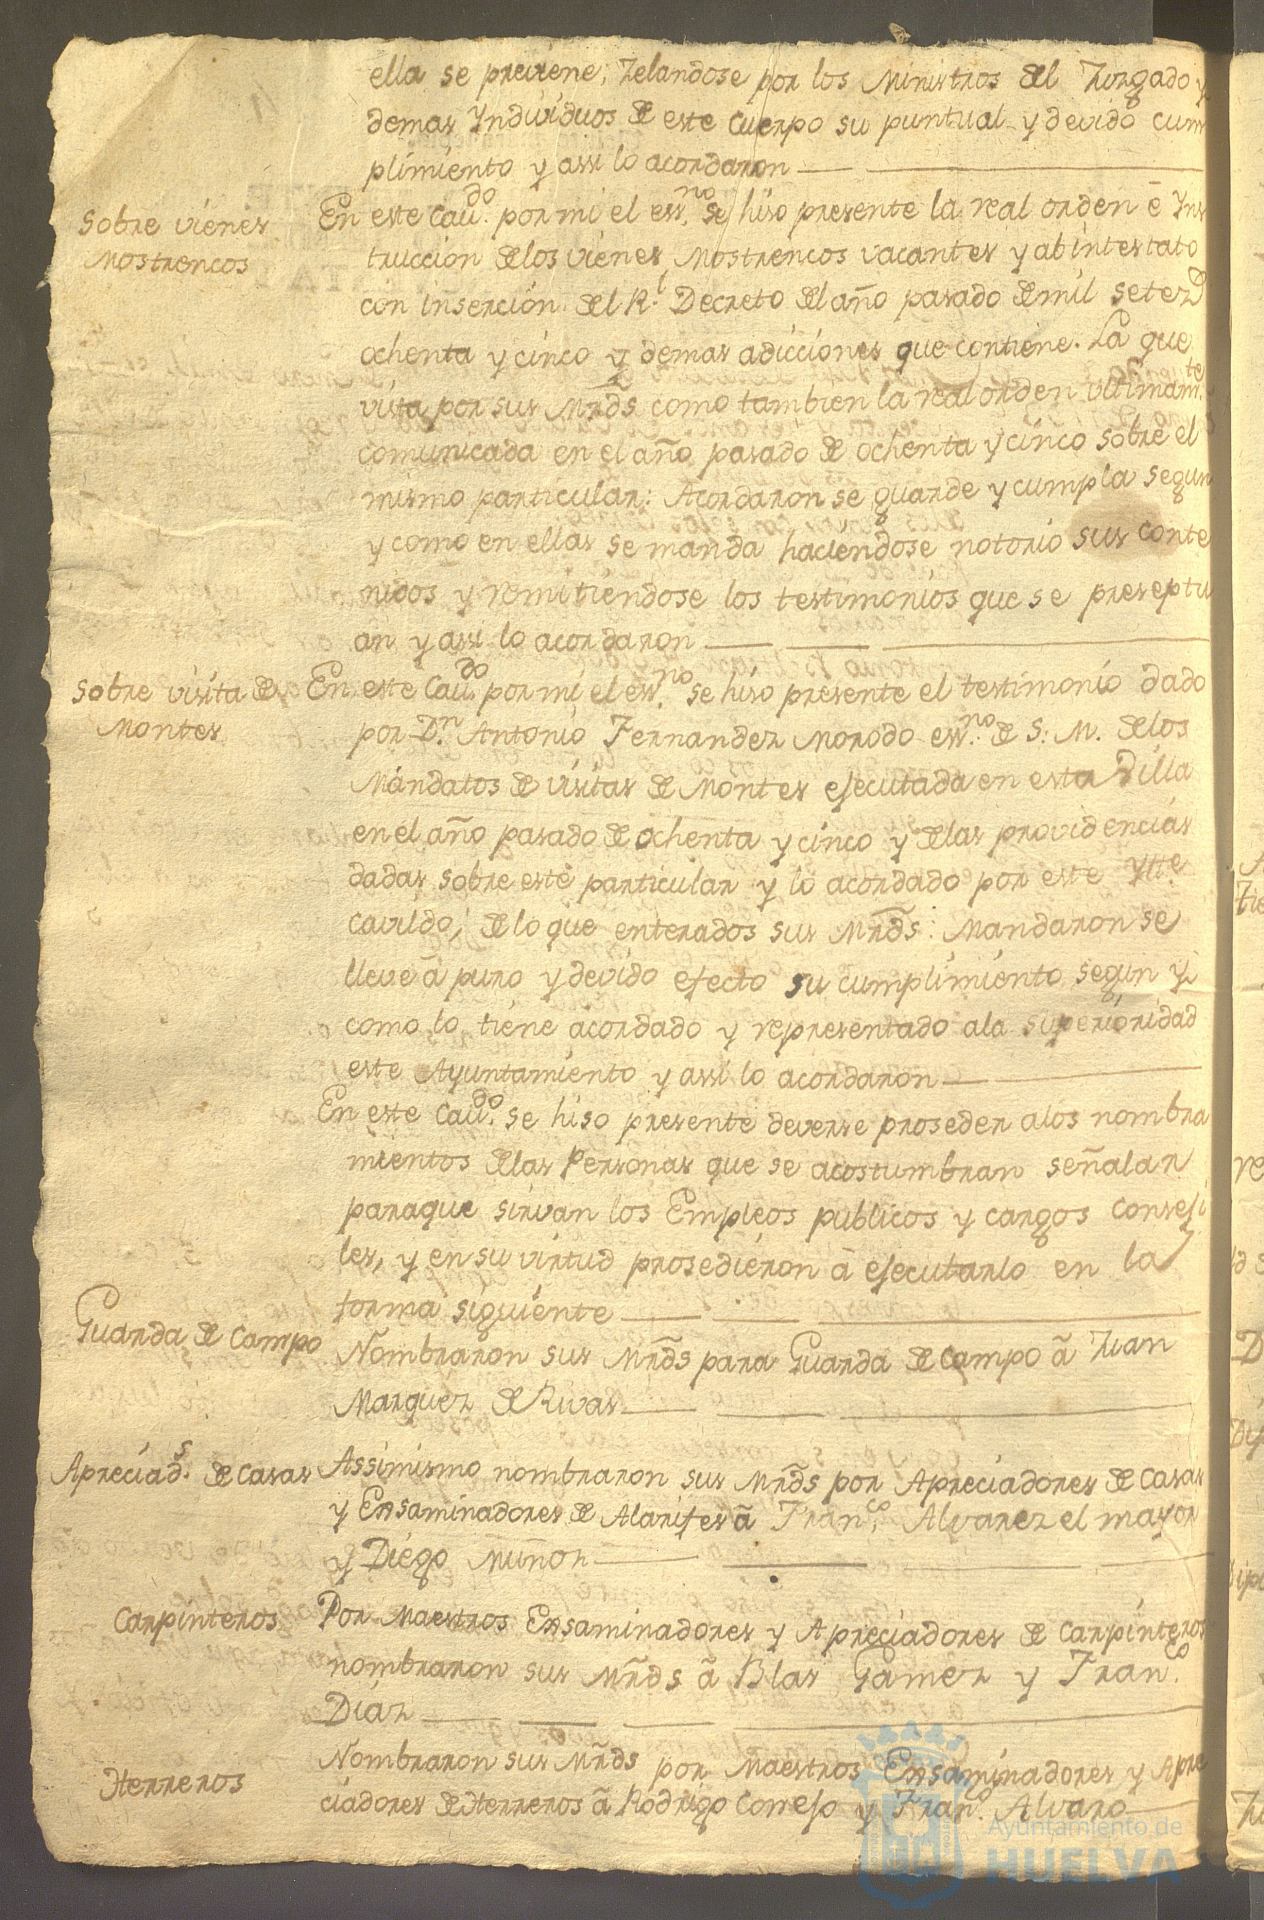 ella se previene; Zelandose por los Ministros del Juzgado y
demas Yndividuos de este Cuerpo su puntual y devido cum
plimiento y assi lo acordaron
Sobre vienes
Mostrencos
En este Cavdo. por mi el essno. se hiso presente la real orden é Yns
truccion de los vienes Mostrencos vacantes y abintestato
con insercion del Rl. Decreto del año pasado de mil setezs
ochenta y cinco y demas adicciones que contiene. La que
vista por sus Mrds como tambien la real orden ultimamte.
comunicada en el año pasado de ochenta y cinco sobre el
mismo particular: Acordaron se guarde y cumpla segun
y como en ellas se manda haciendose notorio sus conte
nidos y remitiendose los testimonios que se preseptu
an y assi lo acordaron
Sobre visita de
Montes
En este Cavdo. por mi el essno. se hiso presente el testimonio dado
por Dn. Antonio Fernandez Morodo essno. de S. M. de los
Mandatos de visitas de Montes ejecutada en esta Villa
en el año pasado de ochenta y cinco y de las providencias
dadas sobre este particular y lo acordado por este Ytte
cavildo; de lo que enterados sus Mrds: Mandaron se
lleve á puro y devido efecto su cumplimiento segun y
como lo tiene acordado y representado a la superioridad
este Ayuntamiento y assi lo acordaron
En este Cavdo. se hiso presente deverse proseder a los nombra
mientos de las Personas que se acostumbran señalar
paraque sirvan los Empleos publicos y cargos conseji
les, y en su virtud prosedieron á ejecutarlo en la
forma siguiente
Guarda de Campo
Nombraron sus Mrds para Guarda de Campo á Juan
Marquez de Rivas
Apreciads. de Casas
Assimismo nombraron sus Mrds por Apreciadores de Casas
y Ensaminadores de Alarifes á Franco. Alvarez el mayor
y Diego Muñoz
Carpinteros
Por Maestros Ensaminadores y Apreciadores de Carpinteros
nombraron sus Mrds á Blas Gamez y Franco.
Diaz
Herreros
Nombraron sus Mrds por Maestros Ensaminadores y Apre
ciadores de Herreros á Rodrigo Cornejo y Franco. Alvaro
Ayuntamiento de
HUELVA